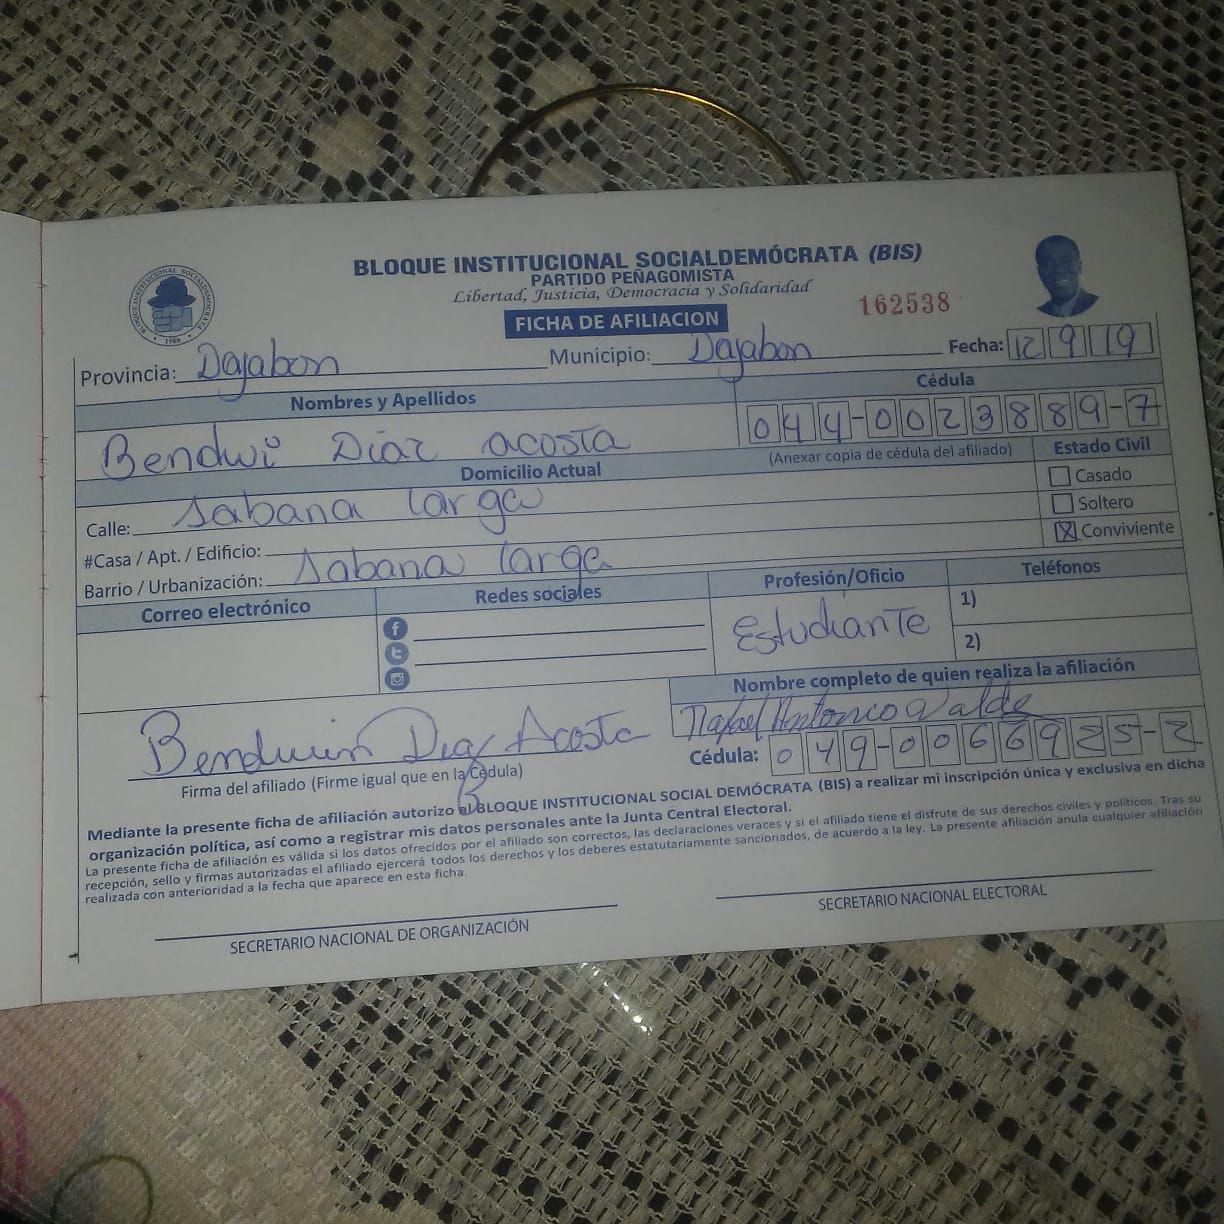 BLOQUE INSTITUCIONAL SOCIALDEMÓCRATA (BIS)
PARTIDO PEÑAGOMISTA
Libertad, Justicia, Democracia y Solidaridad
162538
FICHA DE AFILIACION
Provincia: Dajabon Municipio: Dajabon Fecha: 12 9 19
Nombres y Apellidos Cédula
Bendwi Diaz acosta 044-0023889-7
(Anexar copia de cédula del afiliado)
Domicilio Actual Estado Civil
Casado
Calle: sabana larga Soltero
#Casa / Apt. / Edificio: X Conviviente
Barrio / Urbanización: sabana larga
Correo electrónico Redes sociales Profesión/Oficio Teléfonos
Estudiante 1)
2)
Nombre completo de quien realiza la afiliación
Rafael Antonio Valde
Benduin Diaz Acosta Cédula: 049-0066925-2
Firma del afiliado (Firme igual que en la Cédula)
Mediante la presente ficha de afiliación autorizo al BLOQUE INSTITUCIONAL SOCIAL DEMÓCRATA (BIS) a realizar mi inscripción única y exclusiva en dicha
organización política, así como a registrar mis datos personales ante la Junta Central Electoral.
La presente ficha de afiliación es válida si los datos ofrecidos por el afiliado son correctos, las declaraciones veraces y si el afiliado tiene el disfrute de sus derechos civiles y políticos. Tras su
recepción, sello y firmas autorizadas el afiliado ejercerá todos los derechos y los deberes estatutariamente sancionados, de acuerdo a la ley. La presente afiliación anula cualquier afiliación
realizada con anterioridad a la fecha que aparece en esta ficha.
SECRETARIO NACIONAL DE ORGANIZACIÓN SECRETARIO NACIONAL ELECTORAL